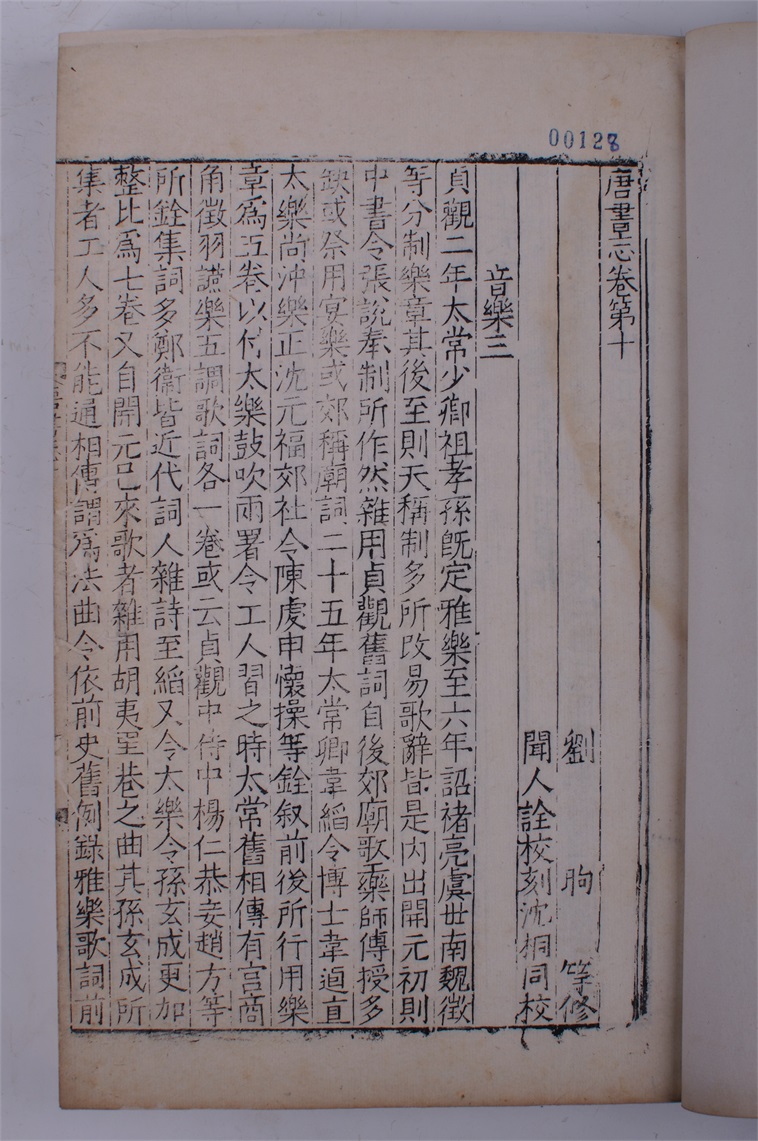 00128
唐書志卷第十
劉昫等修
聞人詮校刻沈桐同校
音樂三
貞觀二年太常少卿祖孝孫旣定雅樂至六年詔褚亮虞世南魏徵
等分制樂章其後至則天稱制多所改易歌辭皆是內出開元初則
中書令張說奉制所作然雜用貞觀舊詞自後郊廟歌工樂師傳授多
缺或祭用宴樂或郊稱廟詞二十五年太常卿韋縚令博士韋逌直
太樂尚沖樂正沈元福郊社令陳虔申懷操等銓叙前後所行用樂
章爲五卷以付太樂鼓吹兩署令工人習之時太常舊相傳有宫商
角徵羽讌樂五調歌詞各一卷或云貞觀中侍中楊仁恭妾趙方等
所銓集詞多鄭衞皆近代詞人雜詩至縚又令太樂令孫玄成更加
整比爲七卷又自開元已來歌者雜用胡夷里巷之曲其孫玄成所
集者工人多不能通相傳謂爲法曲今依前史舊例錄雅樂歌詞前